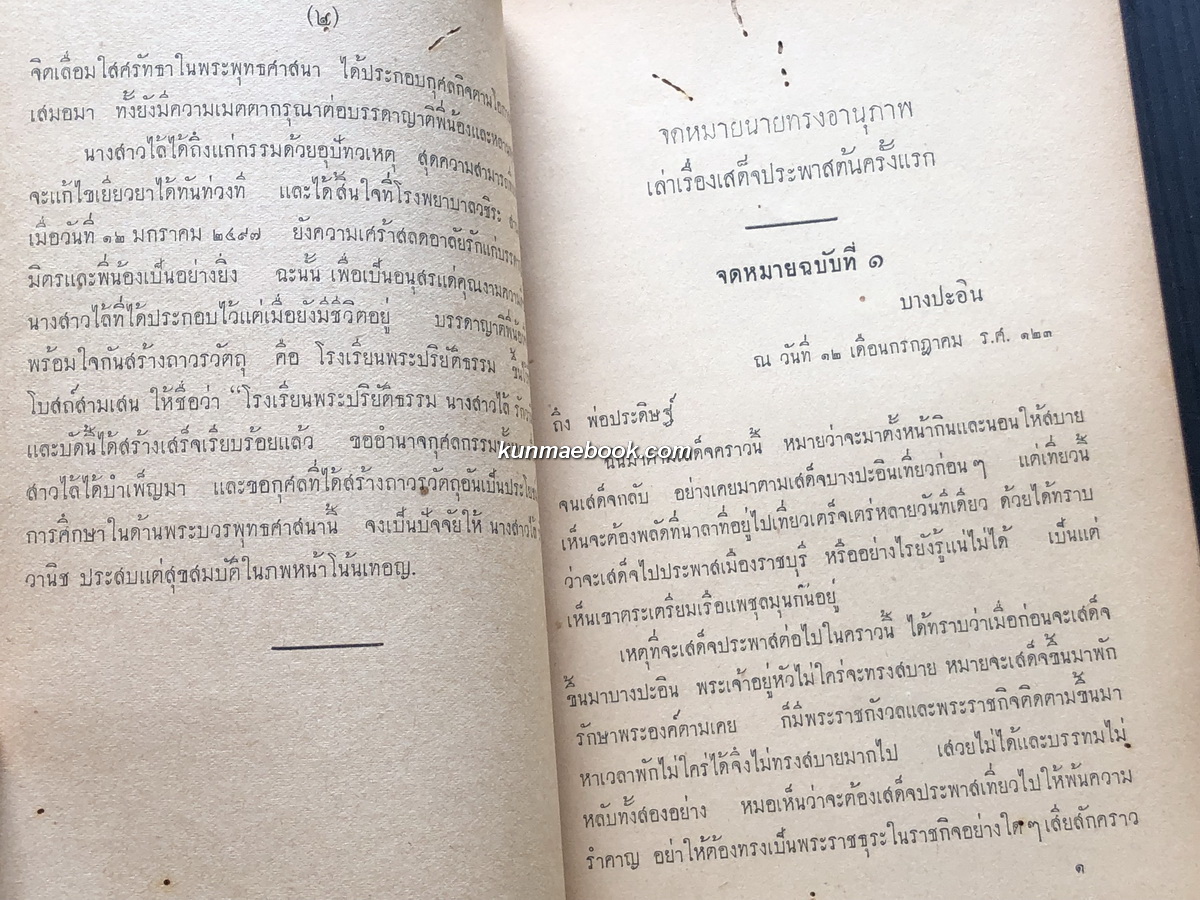 (๒)
จิตเลื่อมใสศรัทธาในพระพุทธศาสนา ได้ประกอบกุศลกิจตาม
เสมอมา ทั้งยังมีความเมตตากรุณาต่อบรรดาญาติพี่น้องและ
นางสาวไล้ได้ถึงแก่กรรมด้วยอุปัทวเหตุ สุดความสามารถ
จะแก้ไขเยียวยาได้ทันท่วงที และได้สิ้นใจที่โรงพยาบาลวชิระ
เมื่อวันที่ ๑๒ มกราคม ๒๔๙๗ ยังความเศร้าสลดอาลัยรักแก่บรรดา
มิตรและพี่น้องเป็นอย่างยิ่ง ฉะนั้น เพื่อเป็นอนุสรแด่คุณงามความ
นางสาวไล้ที่ได้ประกอบไว้แต่เมื่อยังมีชีวิตอยู่ บรรดาญาติพี่น้อง
พร้อมใจกันสร้างถาวรวัตถุ คือ โรงเรียนพระปริยัติธรรม ขึ้น
โบสถ์สามเสน ให้ชื่อว่า “โรงเรียนพระปริยัติธรรม นางสาวไล้
และบัดนี้ได้สร้างเสร็จเรียบร้อยแล้ว ขออำนาจกุศลกรรมนั้น
สาวไล้ได้บำเพ็ญมา และขอกุศลที่ได้สร้างถาวรวัตถุอันเป็นประโยชน์
การศึกษาในด้านพระบวรพุทธศาสนานี้ จงเป็นปัจจัยให้ นางสาวไล้
วานิช ประสบแต่สุขสมบัติในภพหน้าโน้นเทอญ.
จดหมายนายทรงอานุภาพ
เล่าเรื่องเสด็จประพาสต้นครั้งแรก
จดหมายฉบับที่ ๑
บางปะอิน
ณ วันที่ ๑๒ เดือนกรกฎาคม ร.ศ. ๑๒๓
ถึง พ่อประดิษฐ์
ฉันมาตามเสด็จคราวนี้ หมายว่าจะมาตั้งหน้ากินและนอนให้สบาย
จนเสด็จกลับ อย่างเคยมาตามเสด็จบางปะอินเที่ยวก่อนๆ แต่เที่ยวนี้
เห็นจะต้องพลัดที่นาลาที่อยู่ไปเที่ยวเตร็จเตร่หลายวันทีเดียว ด้วยได้ทราบ
ว่าจะเสด็จไปประพาสเมืองราชบุรี หรืออย่างไรยังรู้แน่ไม่ได้ เป็นแต่
เห็นเขาตระเตรียมเรือแพชุลมุนกันอยู่
เหตุที่จะเสด็จประพาสต่อไปในคราวนี้ ได้ทราบว่าเมื่อก่อนจะเสด็จ
ขึ้นมาบางปะอิน พระเจ้าอยู่หัวไม่ใคร่จะทรงสบาย หมายจะเสด็จขึ้นมาพัก
รักษาพระองค์ตามเคย ก็มีพระราชกังวลและพระราชกิจติดตามขึ้นมา
หาเวลาพักไม่ใคร่ได้จึงไม่ทรงสบายมากไป เสวยไม่ได้และบรรทมไม่
หลับทั้งสองอย่าง หมอเห็นว่าจะต้องเสด็จประพาสเที่ยวไปให้พ้นความ
รำคาญ อย่าให้ต้องทรงเป็นพระราชธุระในราชกิจอย่างใดๆ เสียสักคราว
๑
kunmaebook.com